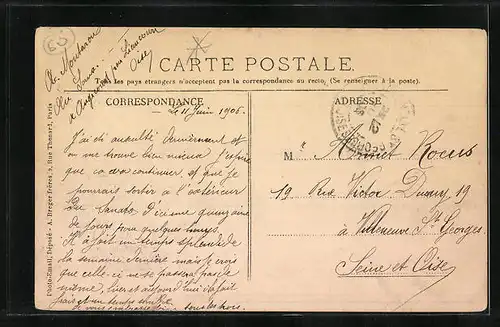 Cl. Montaron
Sana
à Angicourt par Liancourt
Oise
CARTE POSTALE
Tous les pays étrangers n'acceptent pas la correspondance au recto. (Se renseigner à la poste).
CORRESPONDANCE
ADRESSE
Le 11 Juin 1906.
J'ai été ausculté dernièrement et
on me trouve bien mieux. J'espère
que ça va continuer et que je
pourrais sortir à l'extérieur
du Sanato d'ici une quinzaine
de jours pour quelques temps.
Il a fait un temps splendide
la semaine dernière mais je crois
que celle-ci ne se passera pas de
même, hier et aujourd'hui il fait
frais et un temps
M
19 Rue Victor Duruy 19
à Villeneuve St Georges
Seine et Oise
Photo-Email, Déposé - A. Breger frères, 9, Rue Thénard, Paris